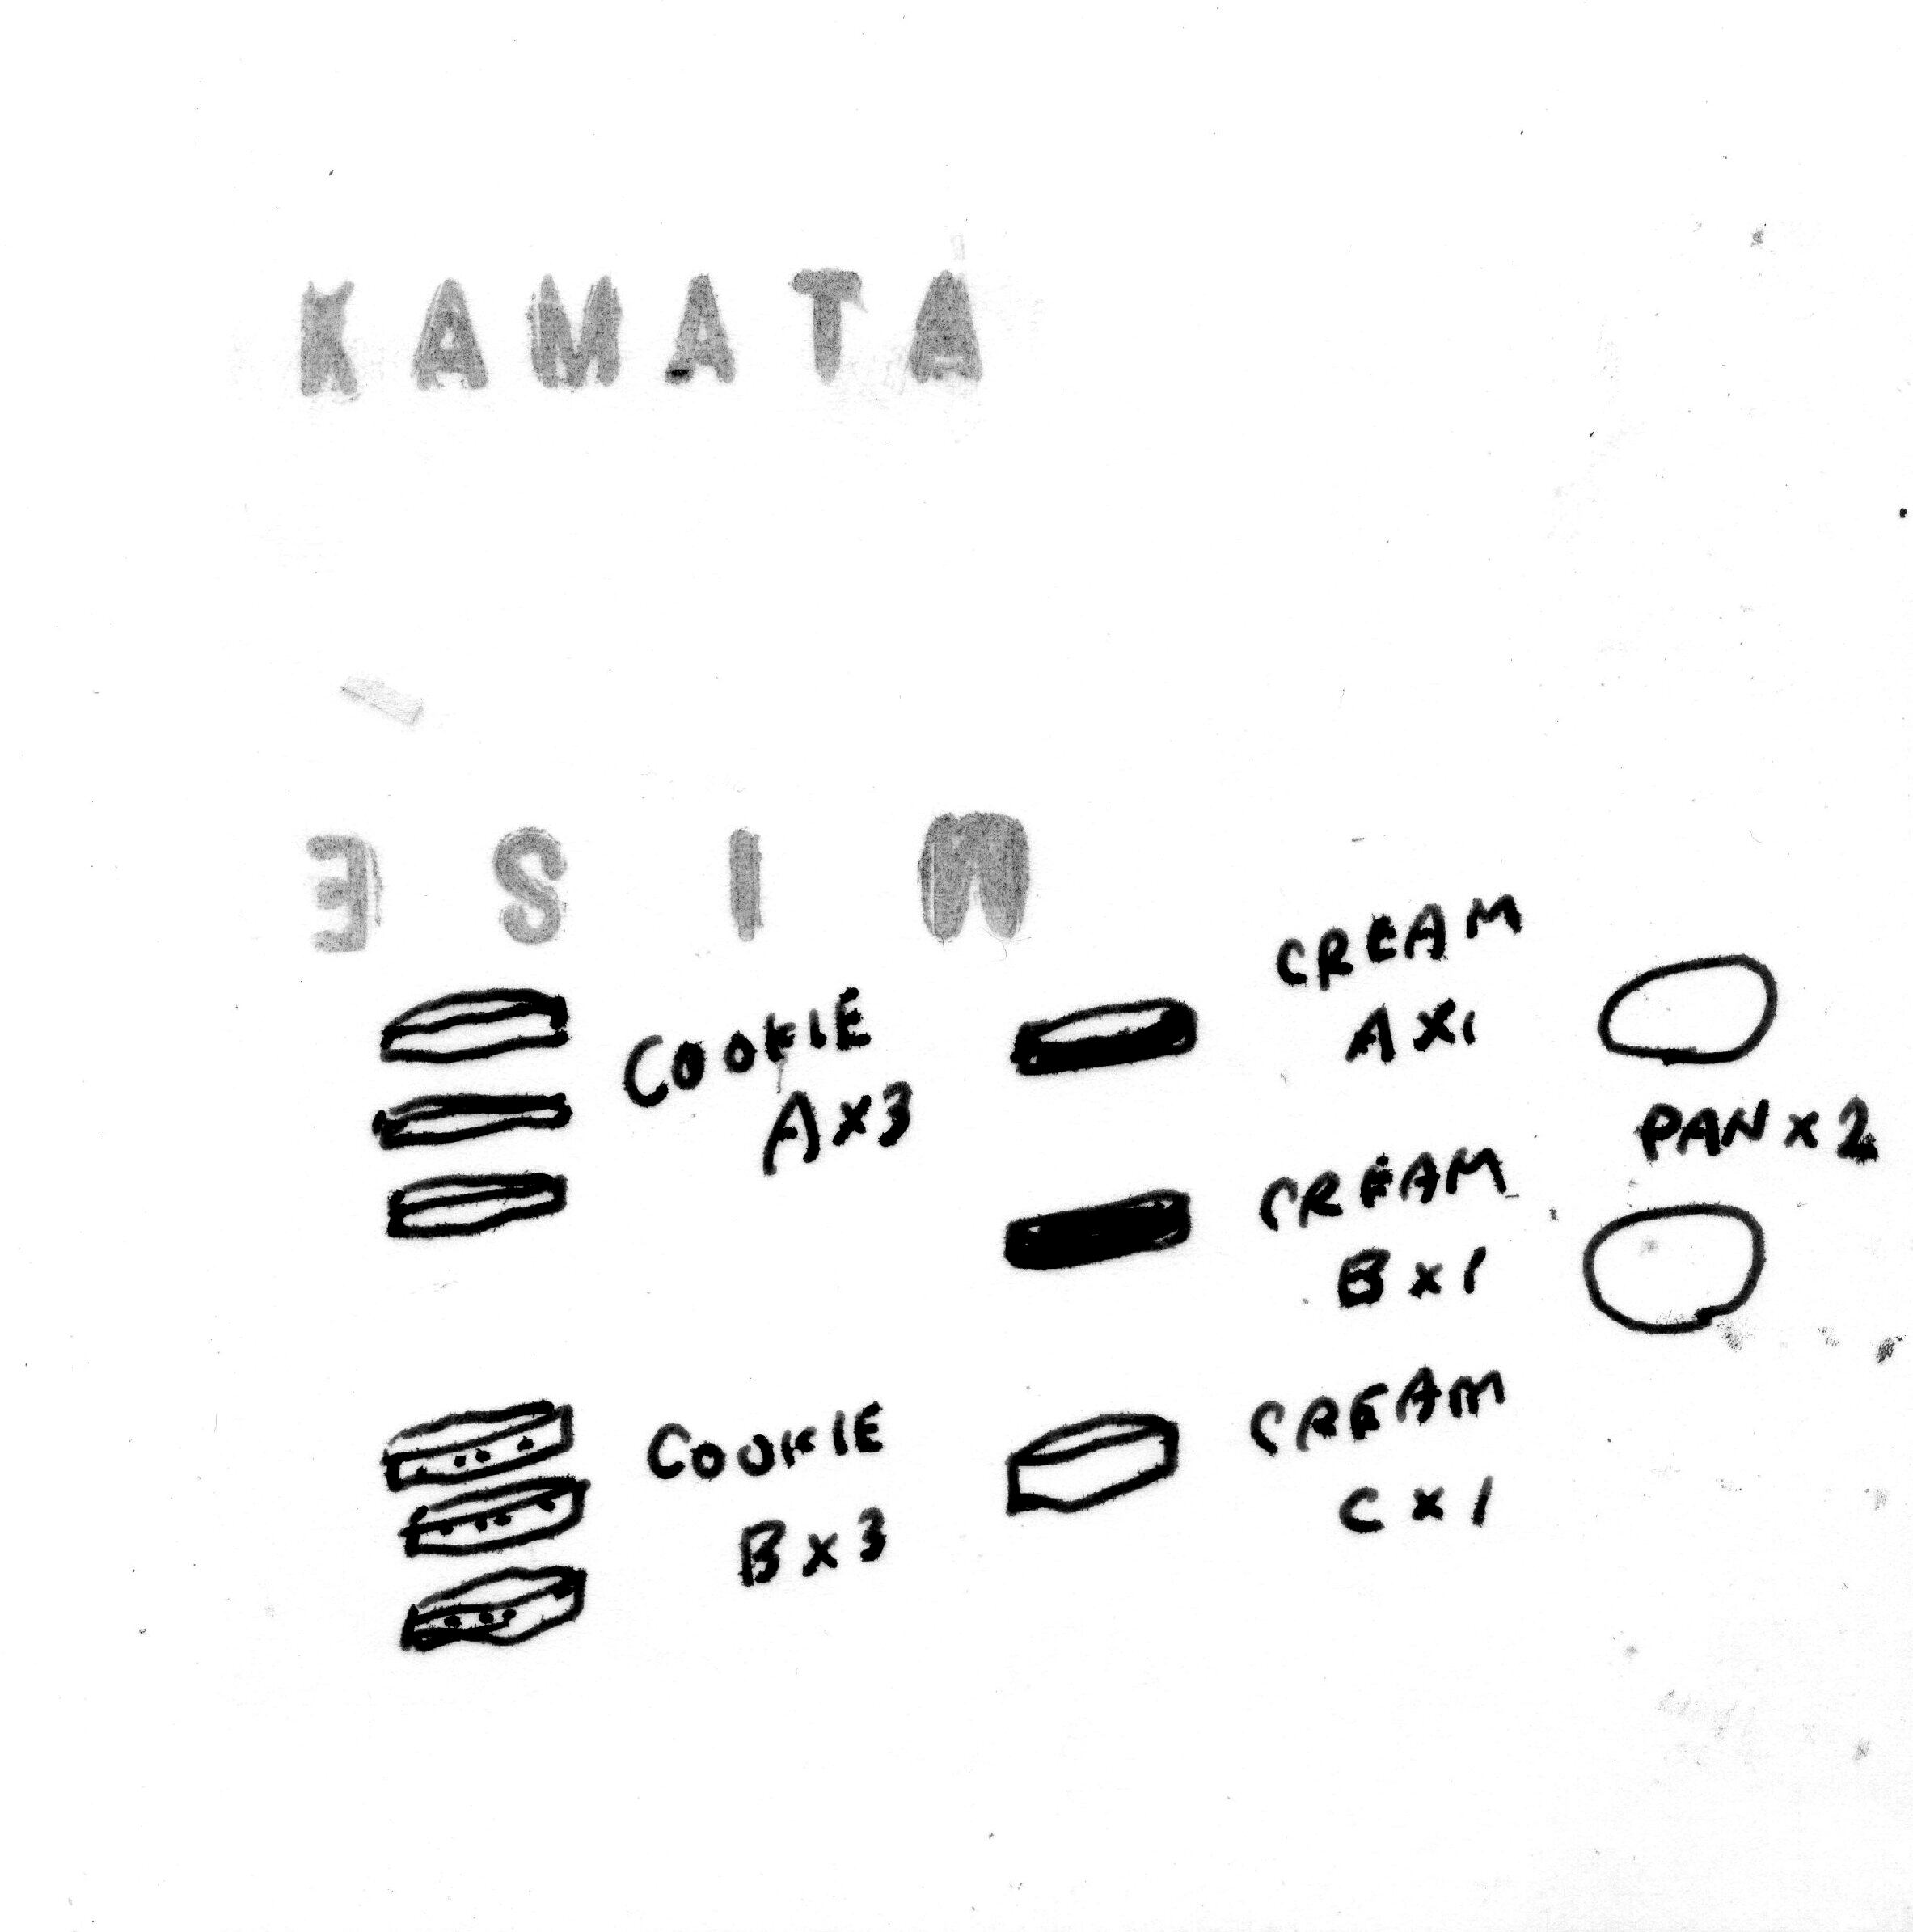 KAMATA
ESIM
COOKIE
A x 3
CREAM
A x 1
PAN x 2
CREAM
B x 1
COOKIE
B x 3
CREAM
C x 1